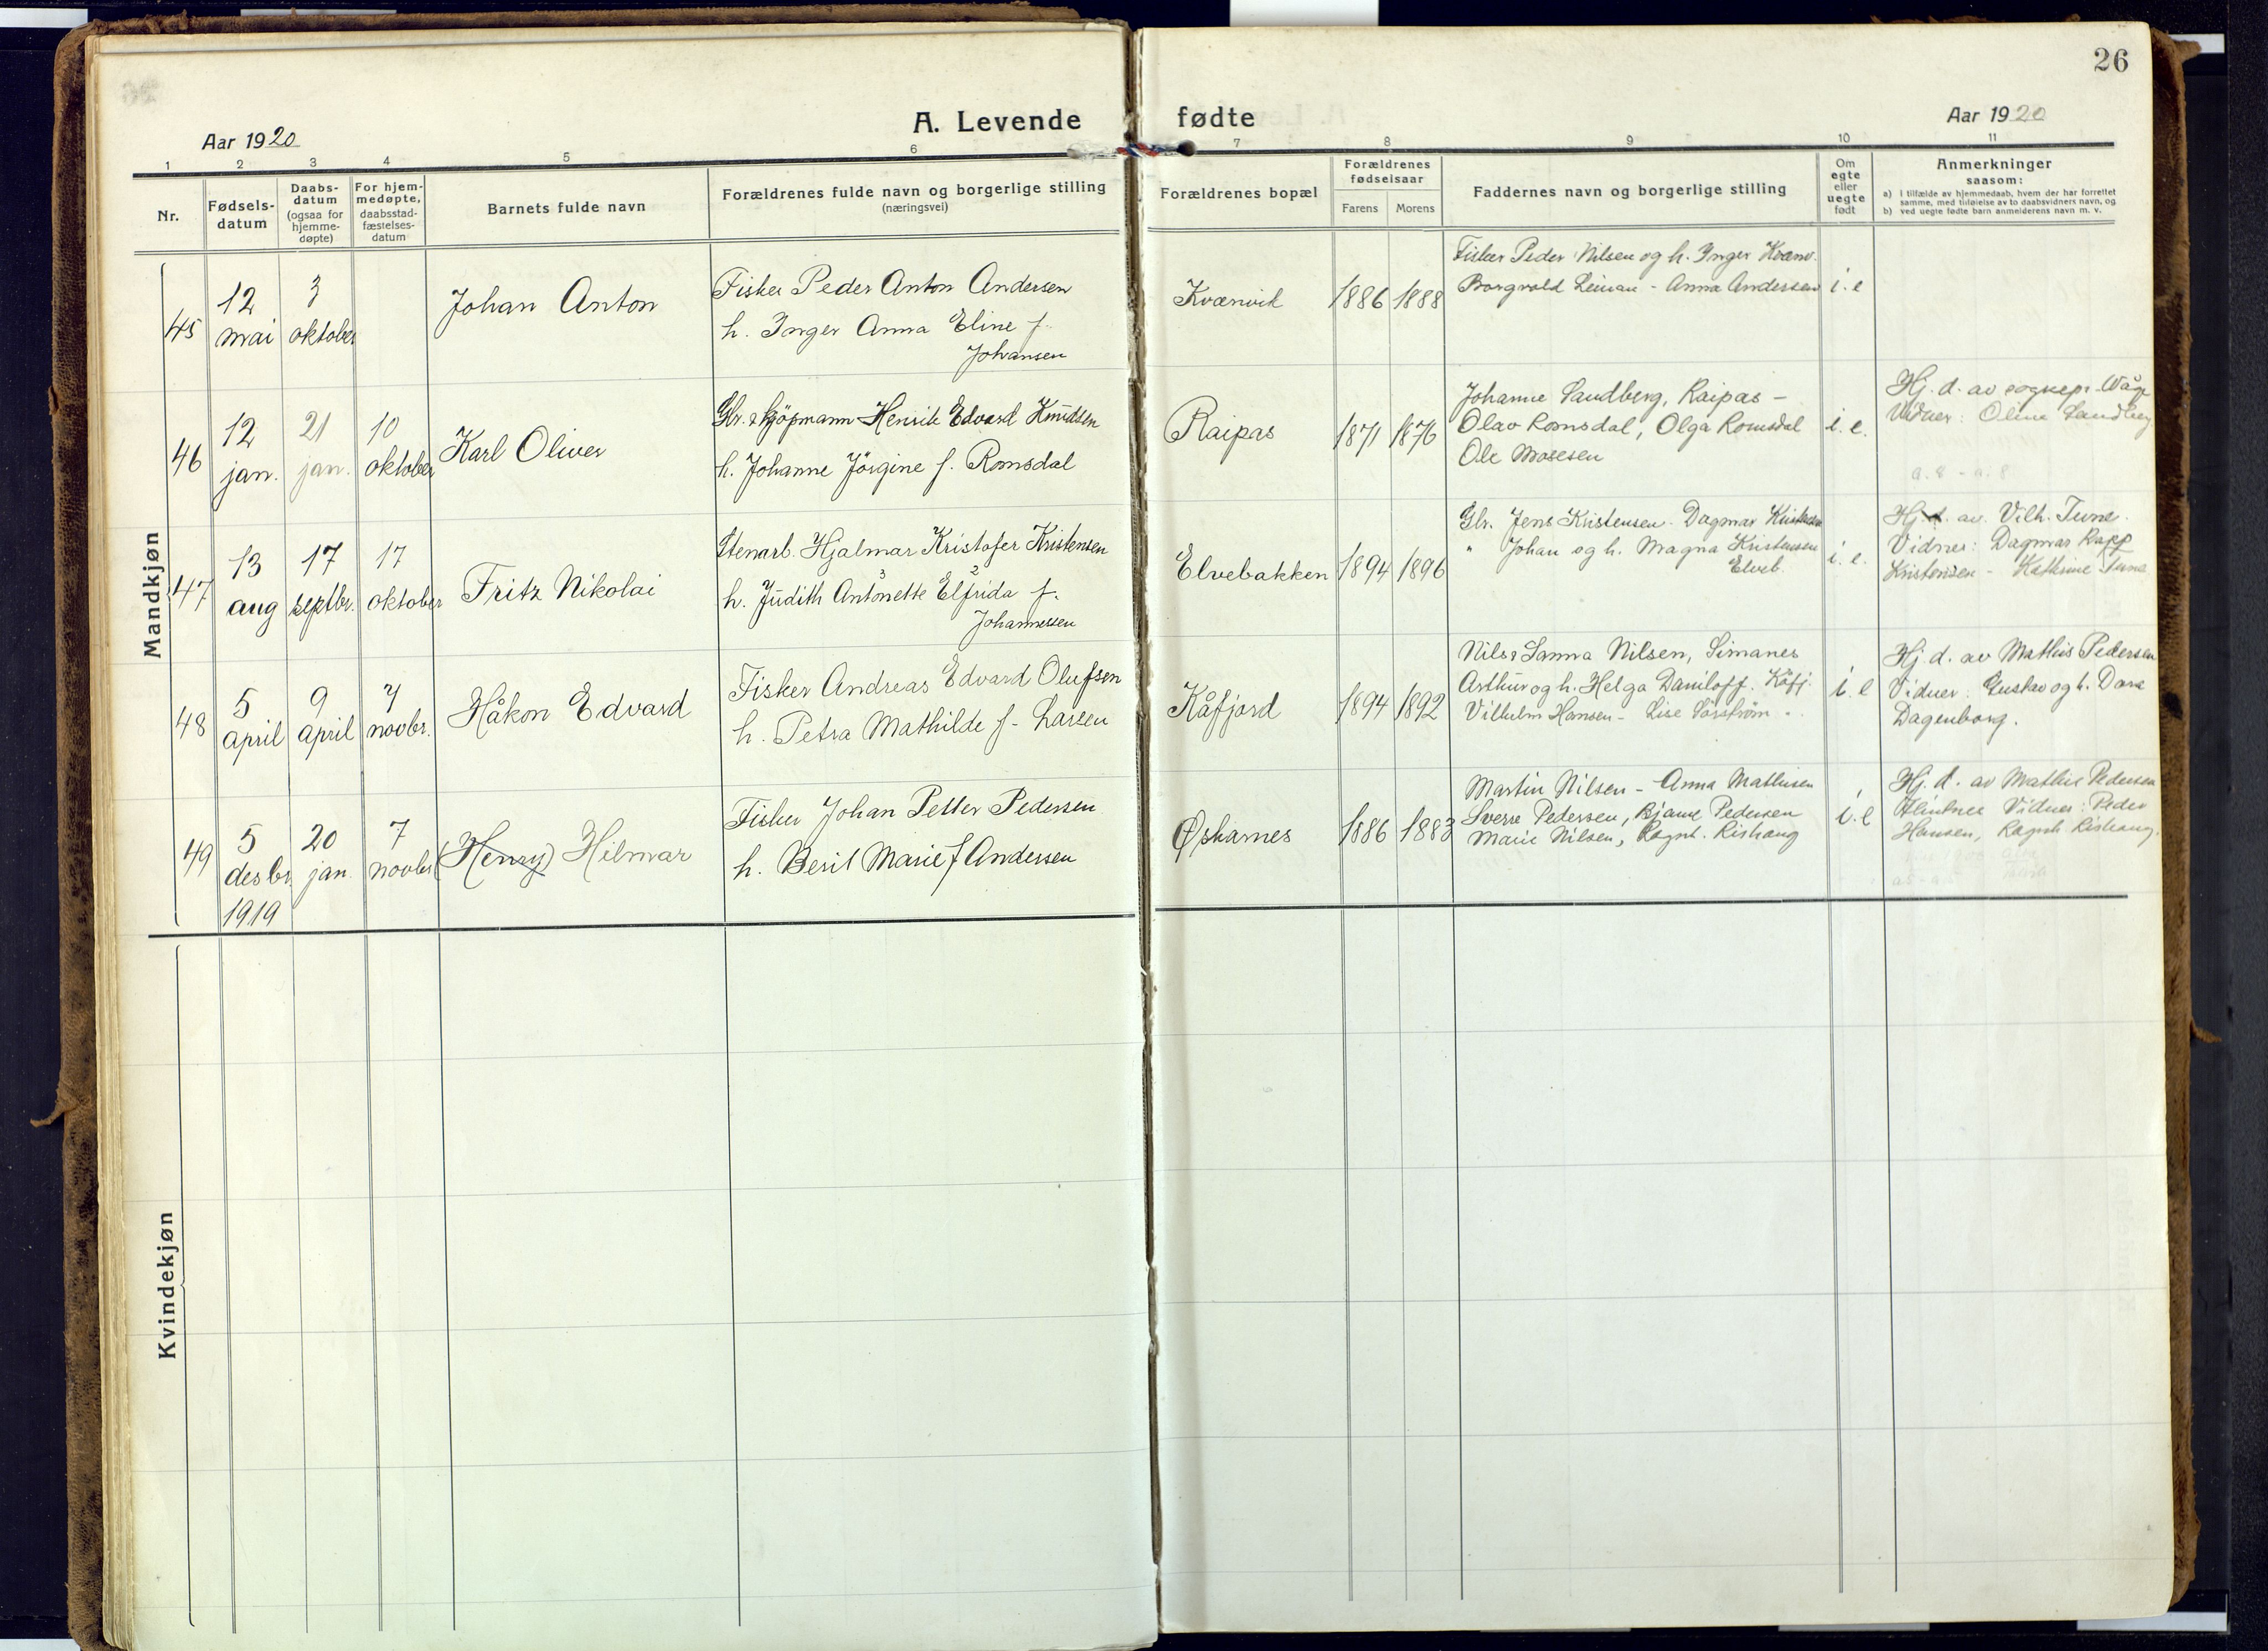 26
A. Levende fødte
Aar 1920
Aar 1920
1 2 3 4 5 6 7 8 9 10 11
Nr.
Fødsels-
datum
Daabs-
datum
(ogsaa for
hjemme-
døpte)
For hjem-
medøpte,
daabsstad-
fæstelses-
datum
Barnets fulde navn
Forældrenes fulde navn og borgerlige stilling
(næringsvei)
Forældrenes bopæl
Forældrenes
fødselsaar
Farens Morens
Faddernes navn og borgerlige stilling
Om
egte
eller
uegte
født
Anmerkninger
saasom:
a) i tilfælde av hjemmedaab, hvem der har forrettet
samme, med tilføielse av to daabsvidners navn, og
b) ved uegte fødte barn anmelderens navn m. v.
Mandkjøn
45
12
mai
3
oktober
Johan Anton
Fisker Peder Anton Andersen
h. Inger Anna Eline f.
Johansen
Kvænvik
1886 1888
Fisker Peder Nilsen og h. Inger Kvænv.
Borgvald Leinan - Anna Andersen
i. e
46
12
jan.
21
jan.
10
oktober
Karl Oliver
Gbr. & kjöpmann Henrik Edvard Knudsen
h. Johanne Jörgine f. Romsdal
Raipas
1871 1876
Johanne Sandberg, Raipas -
Olav Romsdal, Olga Romsdal
Ole Mosesen
i. e.
Hj. d. av sognepr.
Vidner: Oline Sandberg
47
13
aug
17
septbr.
17
oktober
Fritz Nikolai
Stenarb. Hjalmar Kristofer Kristensen
h. Judith Antonette Elfrida f.
Johannessen
Elvebakken
1894 1896
Gbr. Jens Kristensen. Dagmar Kristensen
" Johan og h. Magna Kristensen
Elveb.
i. e.
Hj. d. av Vilh. Tune.
Vidner: Dagmar Rapp
Kristensen - Kathrine Tune
48
5
april
9
april
7
novbr.
Håkon Edvard
Fisker Andreas Edvard Olufsen
h. Petra Mathilde f. Larsen
Kåfjord
1894 1892
Nils & Sanna Nilsen, Simanes
Arthur og h. Helga Daniloff. Kåfj.
Vilhelm Hansen - Lise
i. e
Hj. d. av Mathis Pedersen
Vidner: Gustav og h. Dora
Dagenborg.
49
5
desbr.
1919
20
jan.
7
novbr.
(Henry) Hilmar
Fisker Johan Petter Pedersen
h. Berit Marie f Andersen
Øskarnes
1886 1883
Martin Nilsen - Anna Mathisen
Sverre Pedersen, Bjarne Pedersen
Marie Nilsen, Ragnh. Rishaug
i. e
Hj. d. av Mathis Pedersen
Vidner: Peder
Hansen, Ragnh. Rishaug.
Kvindekjøn